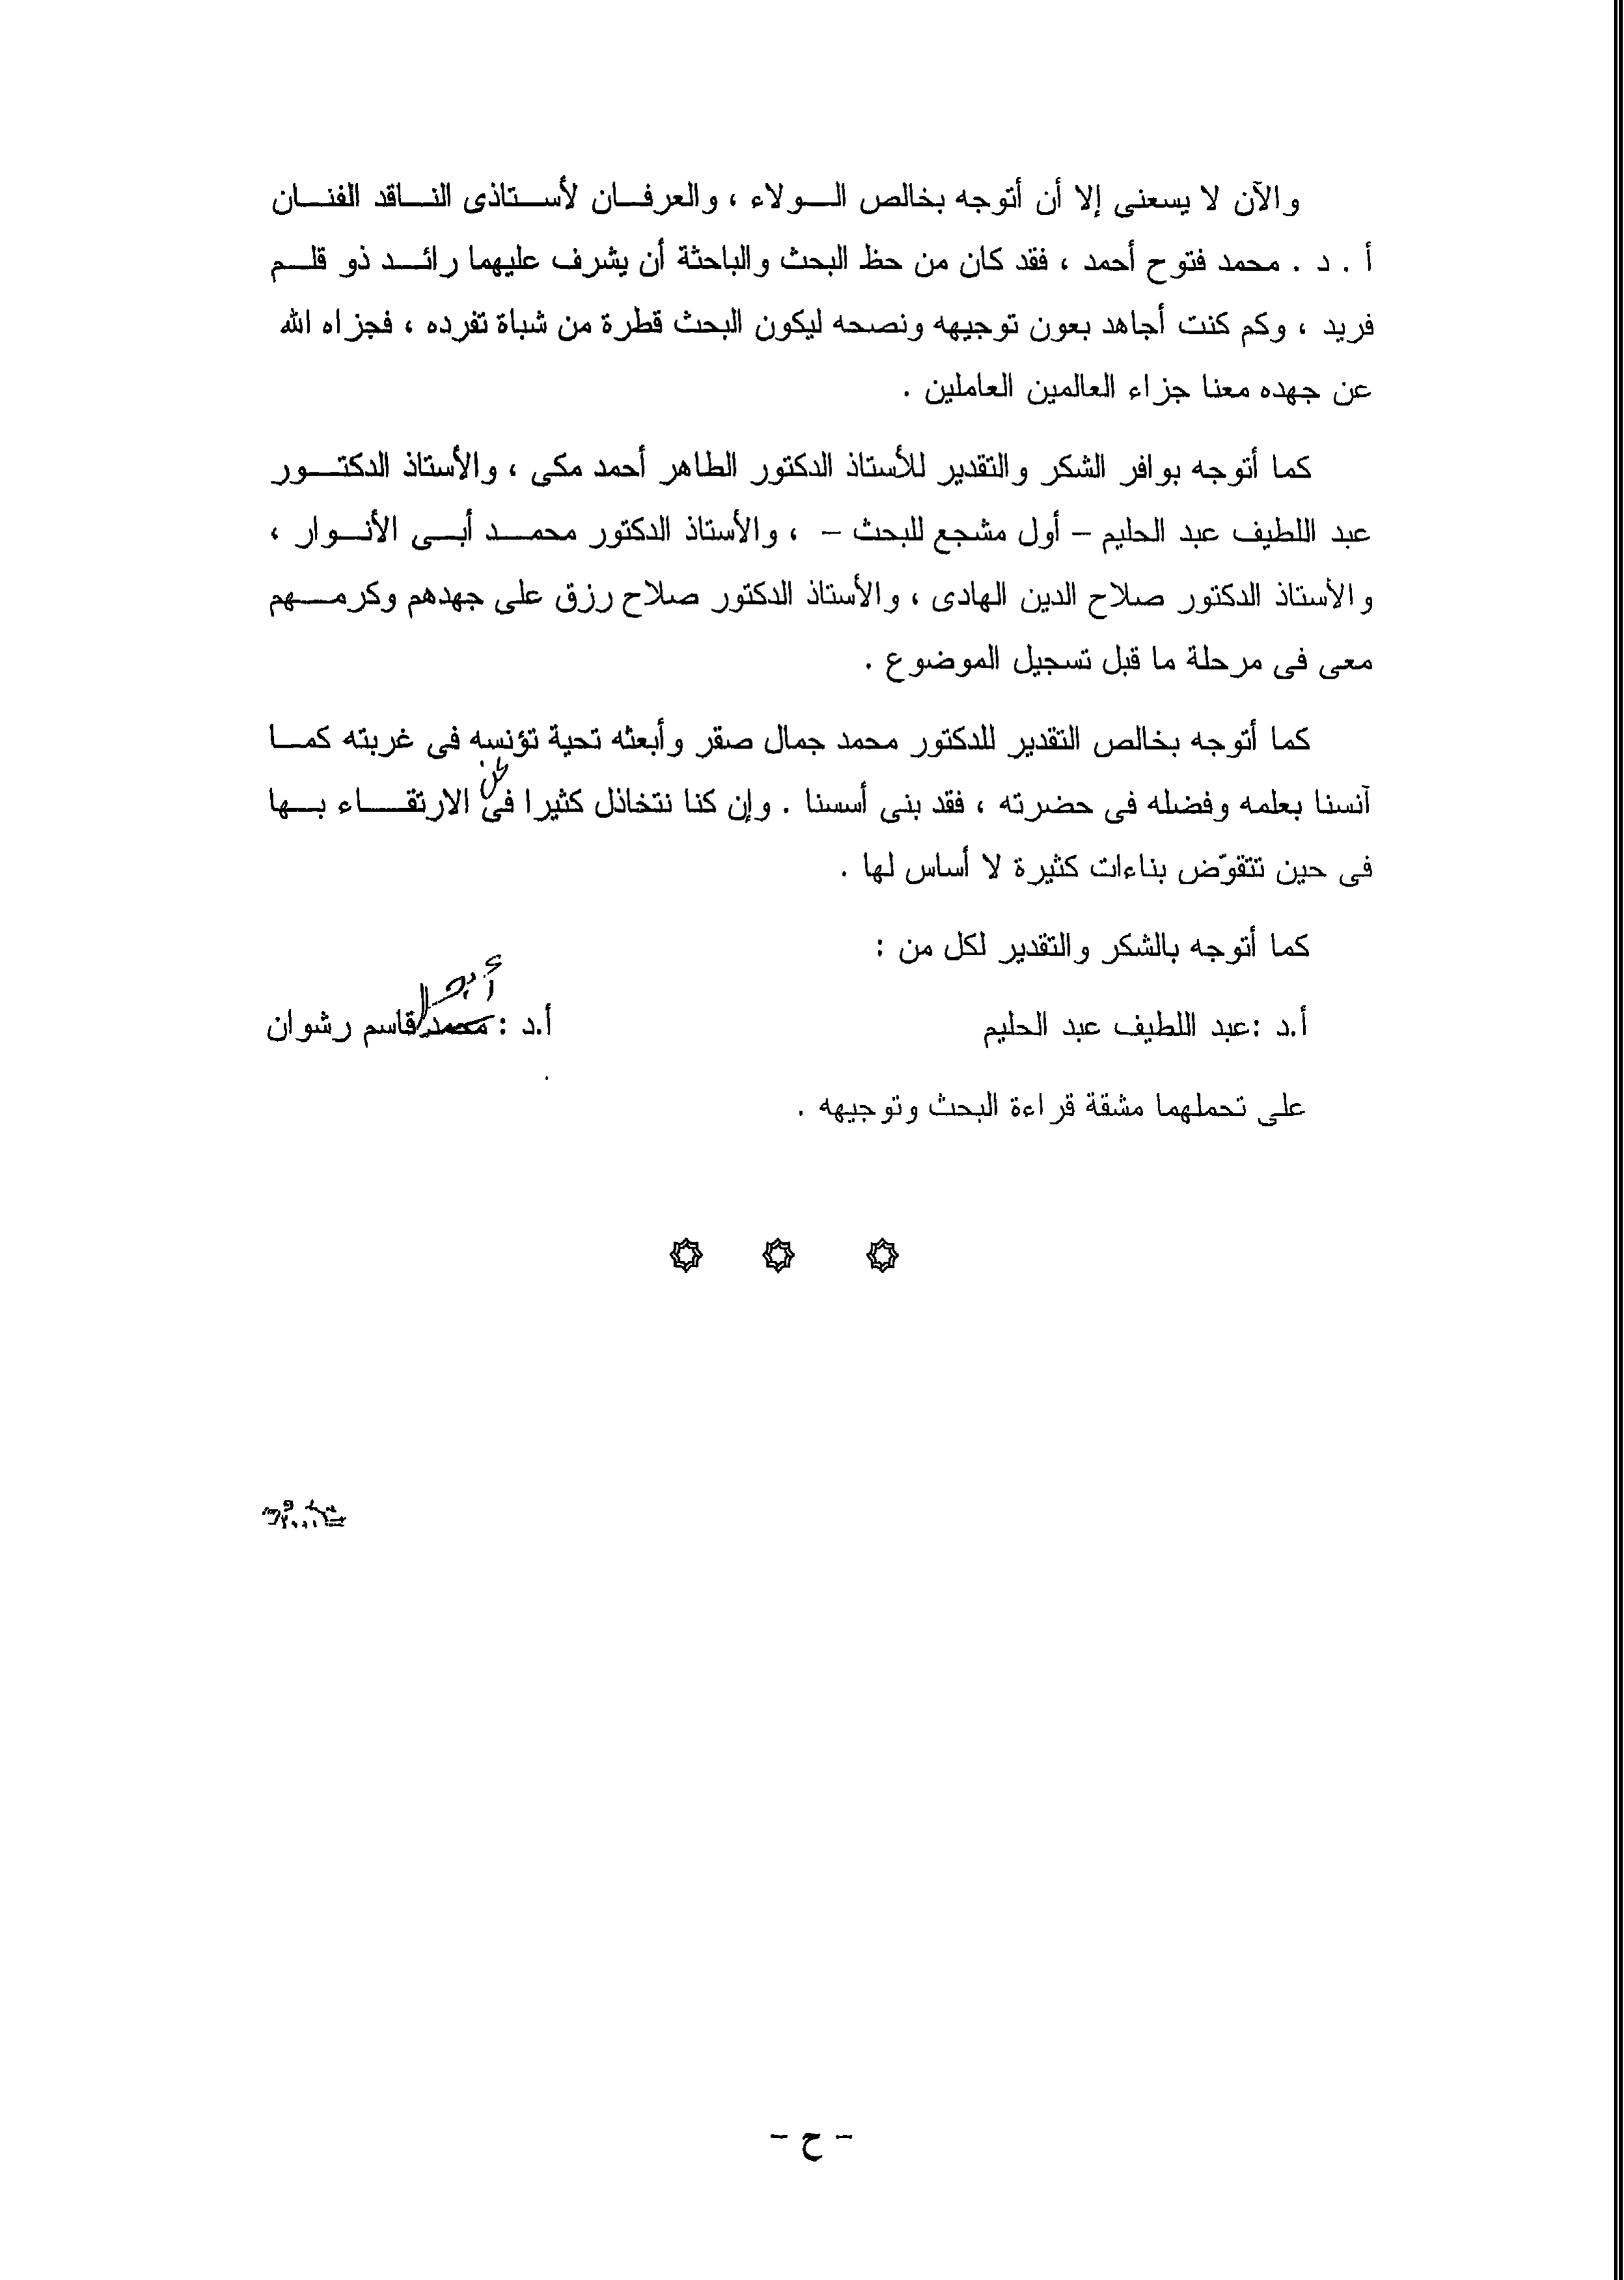 والآن لا يسعنى إلا أن أتوجه بخالص الولاء ، والعرفان لأستاذى الناقد الفنان
أ . د . محمد فتوح أحمد ، فقد كان من حظ البحث والباحثة أن يشرف عليهما رائد ذو قلم
فريد ، وكم كنت أجاهد بعون توجيهه ونصحه ليكون البحث قطرة من شباة تفرده ، فجزاه الله
عن جهده معنا جزاء العالمين العاملين .
كما أتوجه بوافر الشكر والتقدير للأستاذ الدكتور الطاهر أحمد مكى ، والأستاذ الدكتور
عبد اللطيف عبد الحليم – أول مشجع للبحث – ، والأستاذ الدكتور محمد أبى الأنوار ،
والأستاذ الدكتور صلاح الدين الهادى ، والأستاذ الدكتور صلاح رزق على جهدهم وكرمهم
معى فى مرحلة ما قبل تسجيل الموضوع .
كما أتوجه بخالص التقدير للدكتور محمد جمال صقر وأبعثه تحية تؤنسه فى غربته كما
عن
آنسنا بعلمه وفضله فى حضرته ، فقد بنى أسسنا . وإن كنا نتخاذل كثيرا فى الارتقاء بها
فى حين تتقوّض بناءات كثيرة لا أساس لها .
كما أتوجه بالشكر والتقدير لكل من :
أ.د :عبد اللطيف عبد الحليم أ.د : محمد قاسم رشوان
على تحملهما مشقة قراءة البحث وتوجيهه .
- ح -